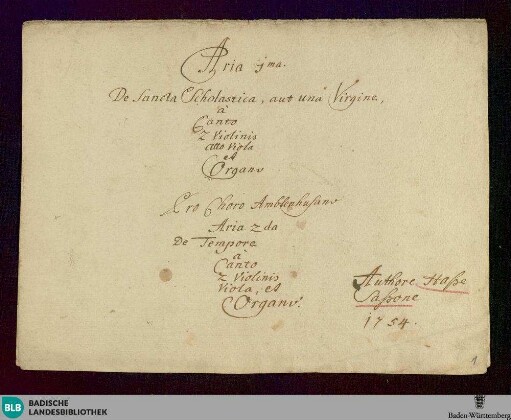 Aria 1ma.
De Sancta Scholastica, aut una Virgine,
à
Canto
2 Violinis
alto Viola
et
Organo
Pro Choro Amblephusano
Aria 2da
De Tempore
à
Canto
2 Violinis
Viola, et
Organo.
Authore Hasse
Sassone
1754.
1
BLB
BADISCHE
LANDESBIBLIOTHEK
Baden-Württemberg